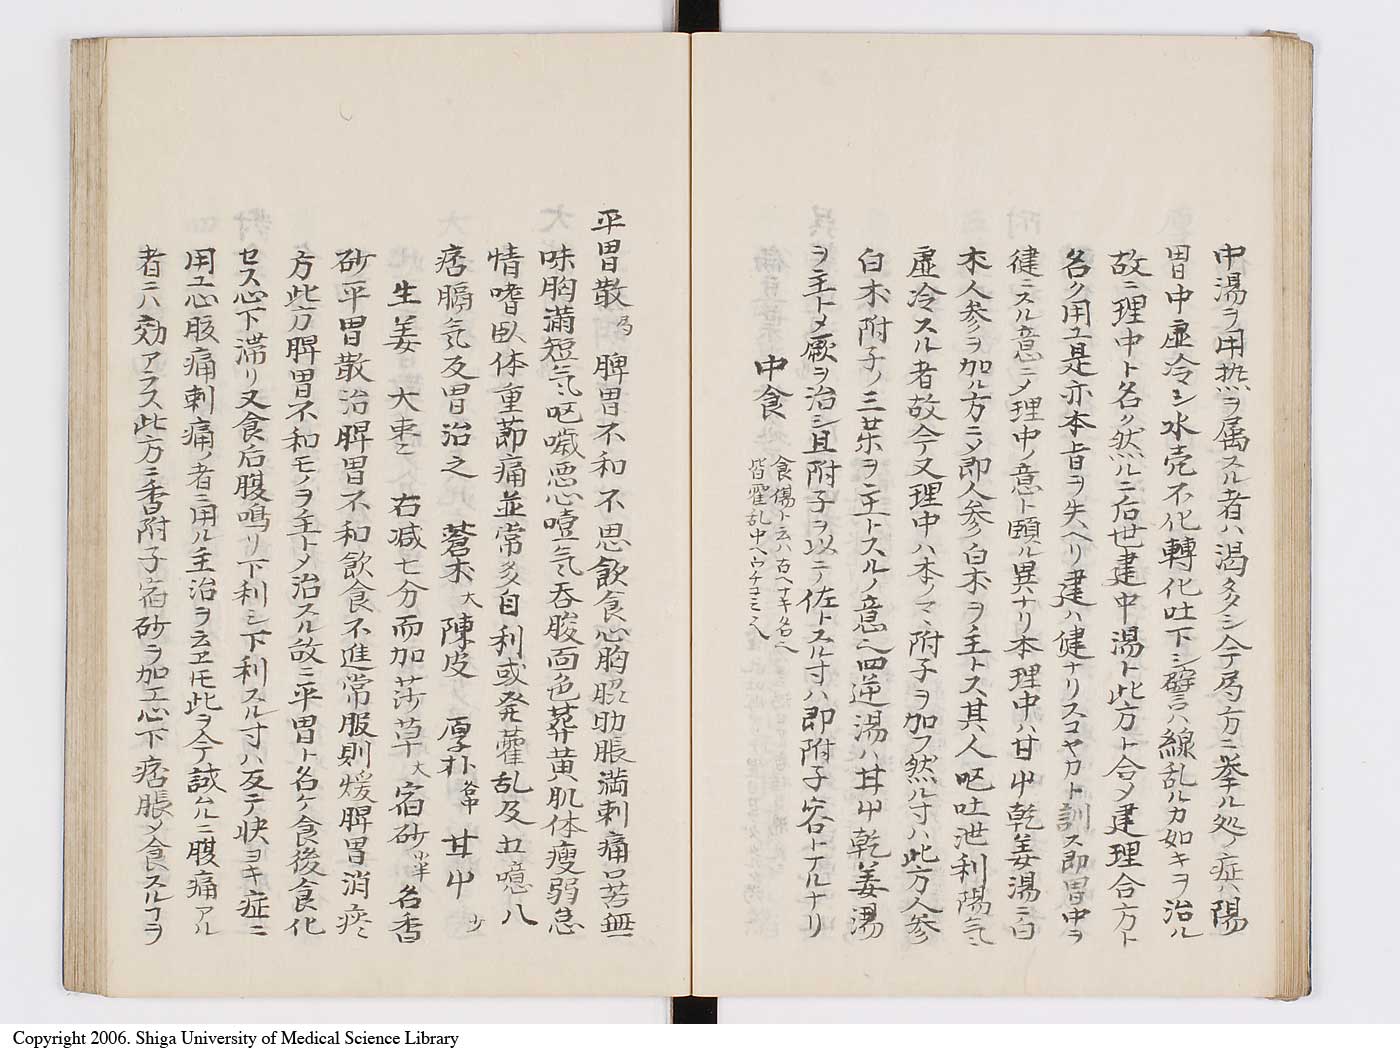 中湯ヲ用熱ヲ属スル者ハ渇多シ今局方ニ挙ル処ノ症ハ陽
胃中虚冷シ水壳不化轉化吐下シ譬ハ線乱ルカ如キヲ治ル
故ニ理中ト名ク然ルニ后世建中湯ト此方ト合メ建理合方ト
名ク用ユ是亦本旨ヲ失ヘリ建ハ健ナリスコヤカト訓ス即胃中ヲ
健ニスル意ニメ理中ノ意ト頗ル異ナリ本理中ハ甘艸乾姜湯ニ白
朮人参ヲ加ル方ニメ即人参白朮ヲ主トス其人呕吐泄利陽気ニ
虚冷スル者故今又理中ハ本ノマヽ附子ヲ加フ然ル寸ハ此方人参
白朮附子ノ三味ヲ主トスルノ意ヘ四逆湯ハ甘艸乾姜湯
ヲ主トメ厥ヲ治シ且附子ヲ以テ佐トスル寸ハ即附子容トナルナリ
中食
食傷ト云ハ古ヘナキ名ヘ
皆霍乱中ヘウチコミ入
平胃散 局 脾胃不和不思飲食心胸脇肋脹満刺痛口苦無
味胸満短気呕噦悪心噎気吞酸面色萎黄肌体瘦弱怠
情嗜臥体重節痛並常多自利或発藿乱及五噎八
痞膈気反胃治之 蒼朮大 陳皮 厚朴 各中 甘艸 少
生姜 大棗ニ 右減七分而加莎草大 宿砂小半 名香
砂平胃散治脾胃不和飲食不進常服則煖脾胃消痰ニ
方此方脾胃不和モノヲ主トメ治スル故ニ平胃ト名ケ食後食化
セス心下滞リ又食后腹鳴リ下利シ下利スル寸ハ反テ快ヨキ症ニ
用ユ心腹痛刺痛ノ者ニ用ル主治ヲ云ヱ𪜈此ヲ今試ムルニ腹痛アル
者ニハ効アラス此方ニ香附子宿砂ヲ加エ心下痞脹メ食スルヿヲ
Copyright 2006. Shiga University of Medical Science Library